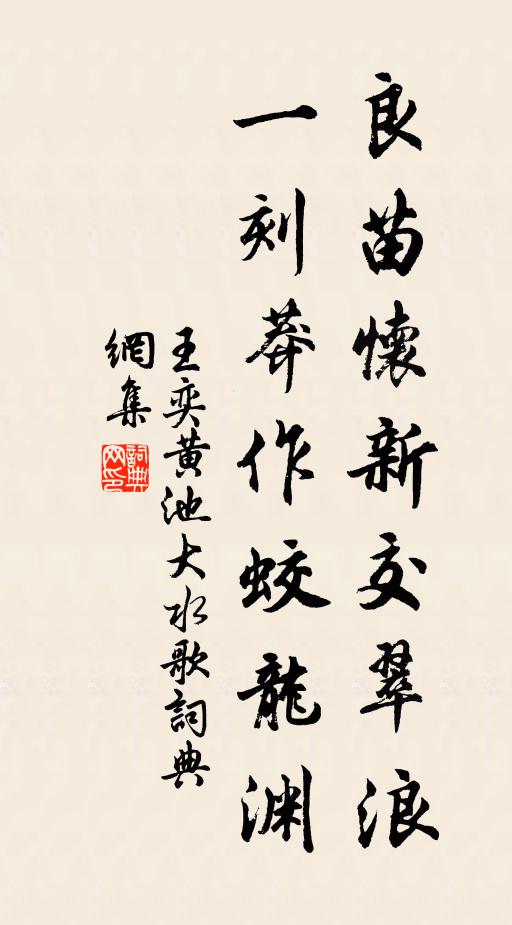 良苗懷新交翠浪
一刻莽作蛟龍渊
王奕黄池大水歌詞典
網集
詞典
网印